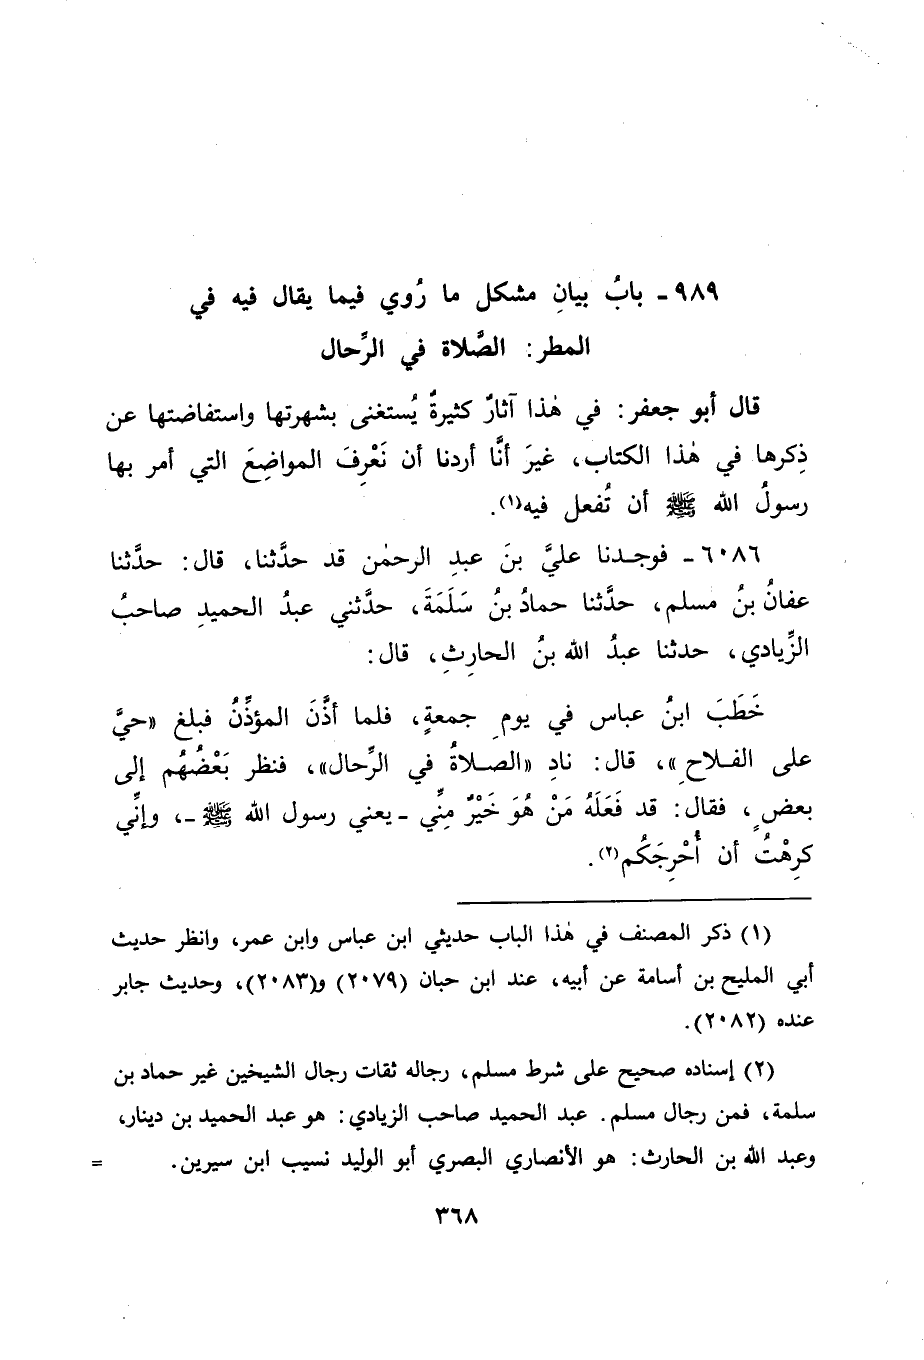 ٩٨٩ - بابُ بيانِ مشكل ما رُوي فيما يقال فيه في
المطر: الصَّلاة في الرِّحال
قال أبو جعفر: في هٰذا آثارٌ كثيرةٌ يُستغنى بشهرتها واستفاضتها عن
ذِكرها في هٰذا الكتاب، غيرَ أنَّا أردنا أن نَعْرِفَ المواضِعَ التي أمر بها
رسولُ الله ﷺ أن تُفعل فيه(١).
٦٠٨٦ - فوجدنا عليَّ بنَ عبدِ الرحمٰن قد حدَّثنا، قال: حدَّثنا
عفانُ بنُ مسلم، حدَّثنا حمادُ بنُ سَلَمَةَ، حدَّثني عبدُ الحميدِ صاحبُ
الزِّيادي، حدثنا عبدُ الله بنُ الحارِثِ، قال:
خَطَبَ ابنُ عباس في يومِ جمعةٍ، فلما أذَّنَ المؤذِّنُ فبلغ «حيَّ
على الفلاحِ»، قال: نادِ «الصلاةُ في الرِّحال»، فنظر بَعْضُهُم إلى
بعضٍ، فقال: قد فَعَلَهُ مَنْ هُوَ خَيْرٌ مِنِّي - يعني رسول الله ﷺ -، وإنِّي
كرِهْتُ أن أُحْرِجَكُم(٢).
(١) ذكر المصنف في هٰذا الباب حديثي ابن عباس وابن عمر، وانظر حديث
أبي المليح بن أسامة عن أبيه، عند ابن حبان (٢٠٧٩) و(٢٠٨٣)، وحديث جابر
عنده (٢٠٨٢).
(٢) إسناده صحيح على شرط مسلم، رجاله ثقات رجال الشيخين غير حماد بن
سلمة، فمن رجال مسلم. عبد الحميد صاحب الزيادي: هو عبد الحميد بن دينار،
وعبد الله بن الحارث: هو الأنصاري البصري أبو الوليد نسيب ابن سيرين. =
٣٦٨